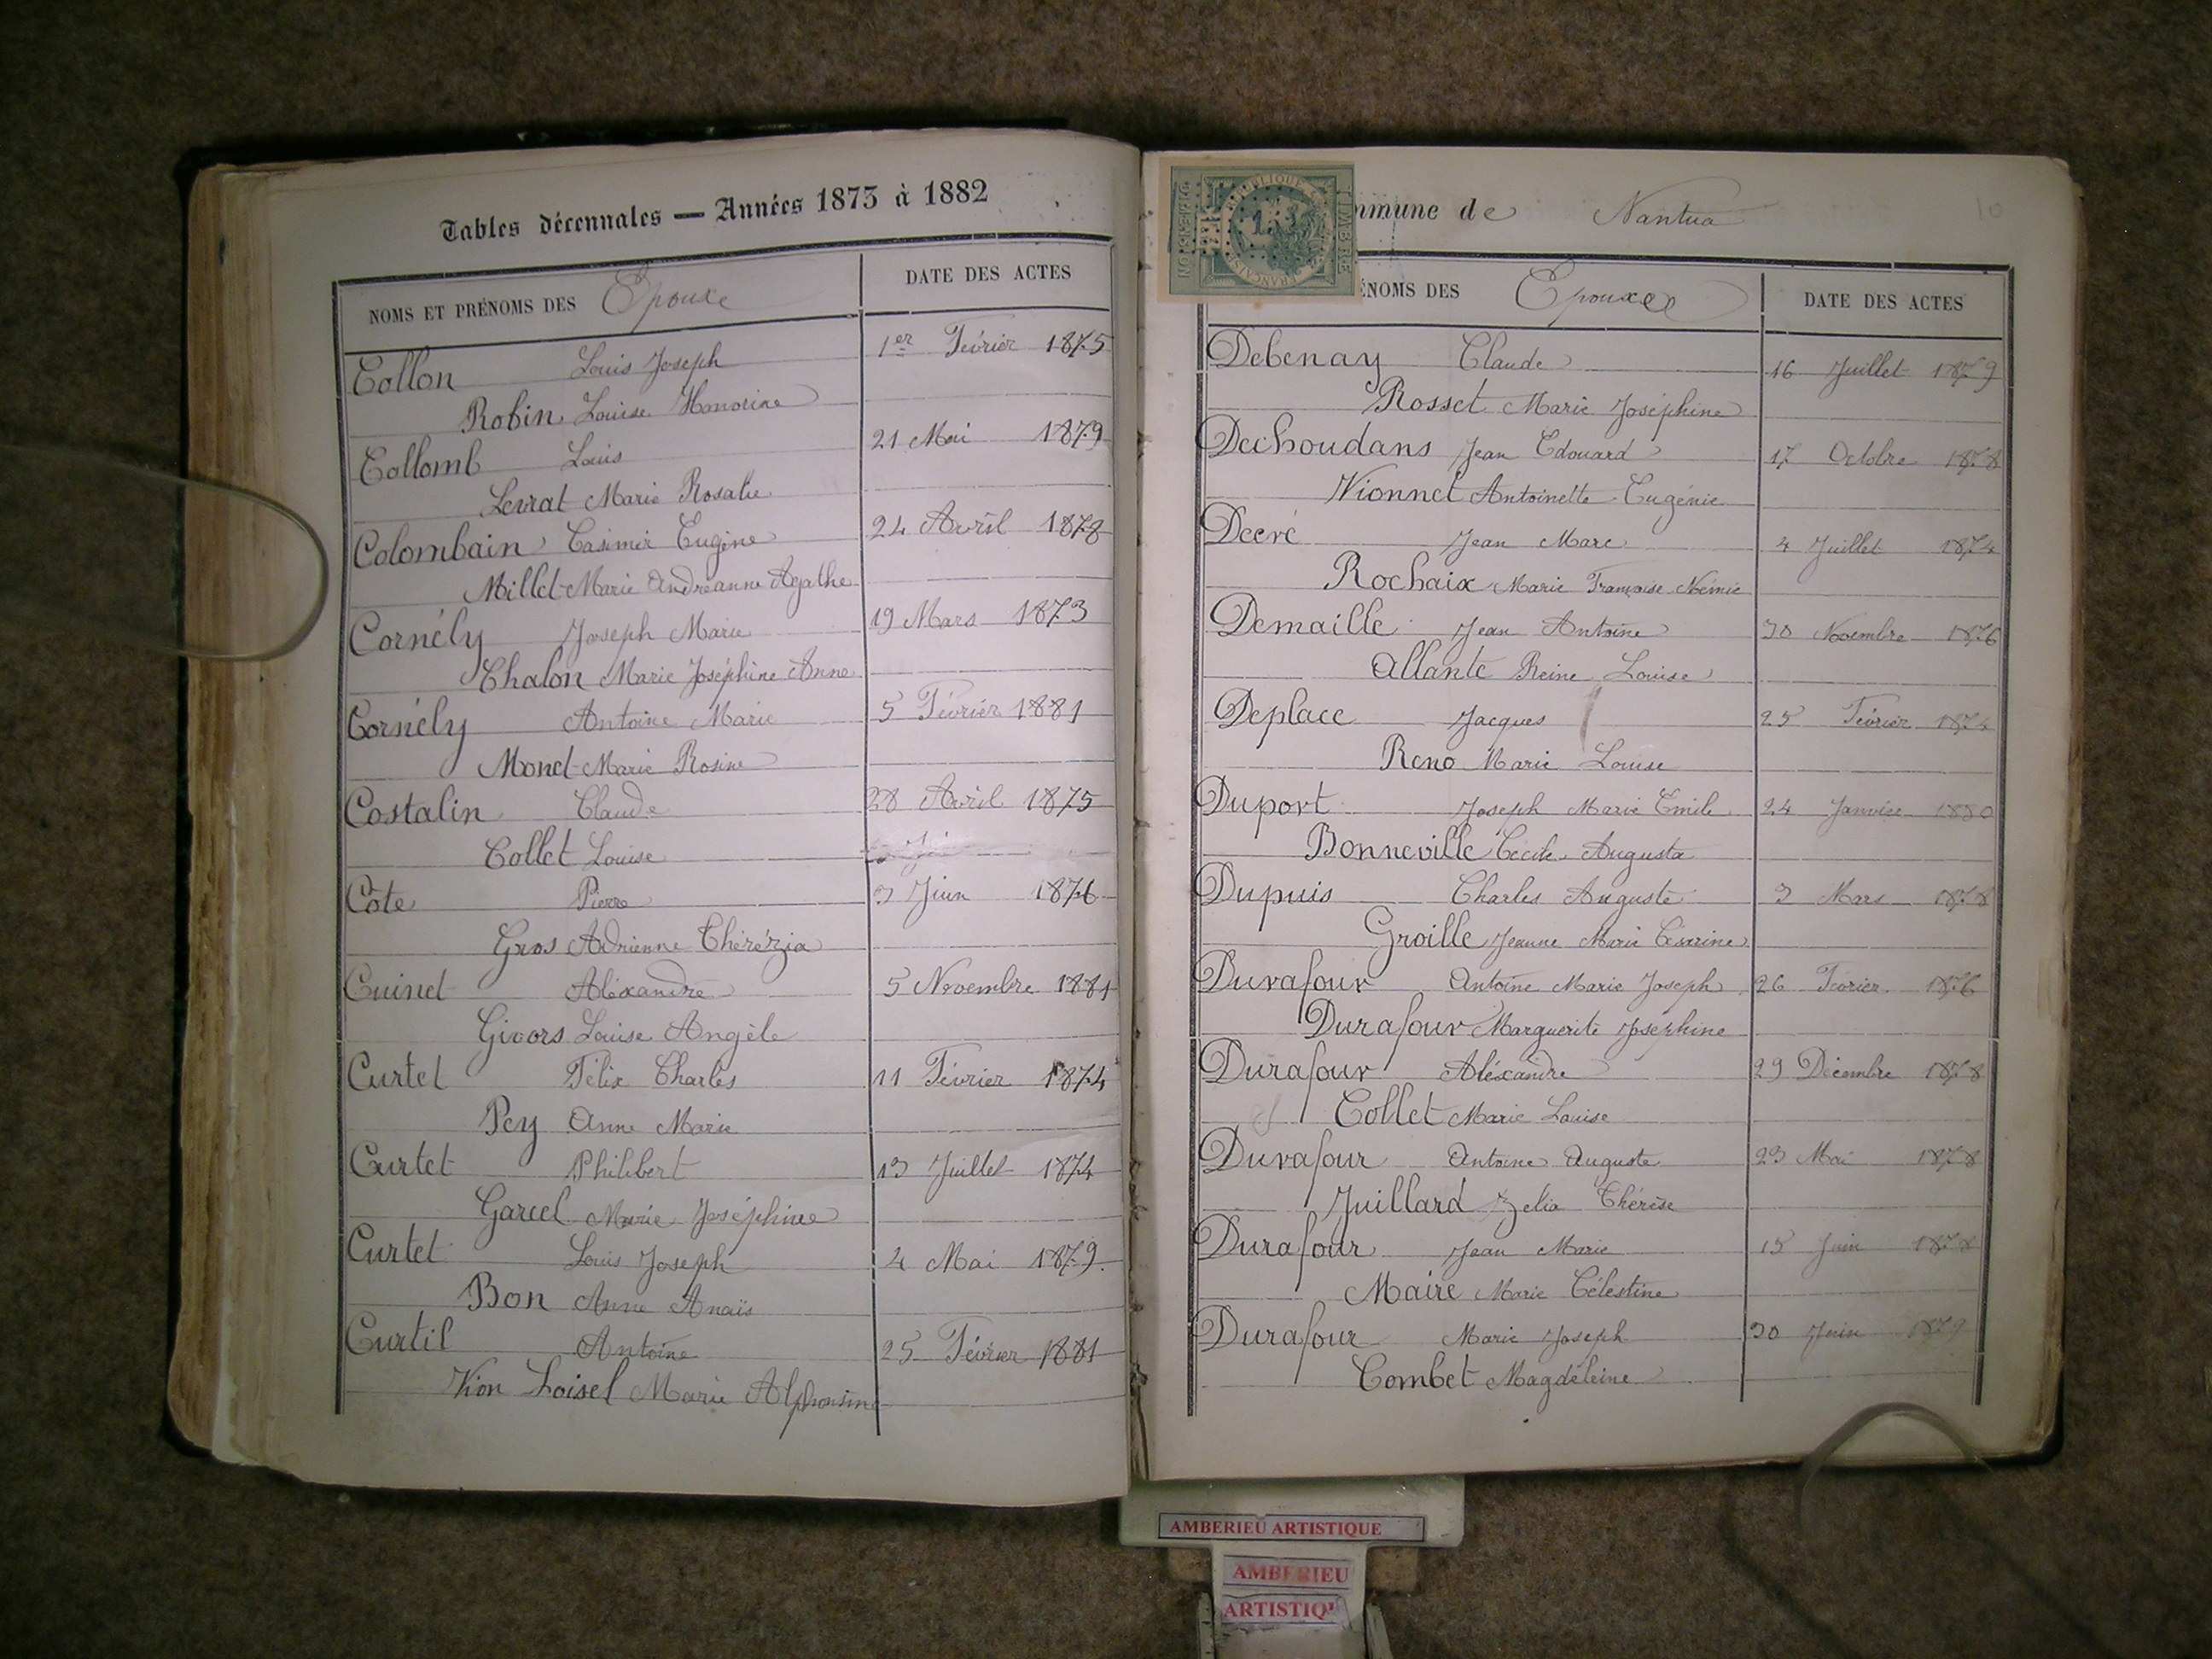 Tables décennales — Années 1873 à 1882
NOMS ET PRÉNOMS DES Epoux
DATE DES ACTES
Collon Louis Joseph 1er Février 1875
Robin Louise Honorine
Collomb Louis 21 Mai 1879
Levrat Marie Rosalie
Colombain Casimir Eugène 24 Avril 1878
Millet Marie Andréanne Agathe
Cornély Joseph Marie 19 Mars 1873
Chalon Marie Joséphine Anne
Cornély Antoine Marie 5 Février 1881
Monet Marie Rosine
Costalin Claude 28 Avril 1875
Collet Louise
Côte Pierre 3 Juin 1876
Gros Adrienne Thérézia
Cuinet Aléxandre 5 Novembre 1881
Givors Louise Angèle
Curtet Félix Charles 11 Février 1874
Pey Anne Marie
Curtet Philibert 13 Juillet 1874
Garcel Marie Joséphine
Curtet Louis Joseph 4 Mai 1879
Bon Anne Anaïs
Curtil Antoine 25 Février 1881
Vion Loisel Marie Alphonsine
mmune de Nantua
10
ÉNOMS DES Epoux
DATE DES ACTES
Debenay Claude 16 Juillet 1879
Rosset Marie Joséphine
Dechoudans Jean Edouard 17 Octobre 1878
Vionnet Antoinette Eugénie
Decré Jean Marc 4 Juillet 1874
Rochaix Marie Françoise Noémie
Demaille Jean Antoine 30 Novembre 1876
Allante Reine Louise
Deplace Jacques 25 Février 1874
Reno Marie Louise
Duport Joseph Marie Emile 24 Janvier 1880
Bonneville Cécile Augusta
Dupuis Charles Auguste 3 Mars 1878
Groille Jeanne Marie Césarine
Durafour Antoine Marie Joseph 26 Février 1876
Durafour Marguerite Joséphine
Durafour Aléxandre 29 Décembre 1878
Collet Marie Louise
Durafour Antoine Auguste 23 Mai 1878
Juillard Zelia Thérèse
Durafour Jean Marie 15 Juin 1878
Maire Marie Célestine
Durafour Marie Joseph 30 Juin 1879
Combet Magdeleine
AMBERIEU ARTISTIQUE
AMBERIEU
ARTISTIQU